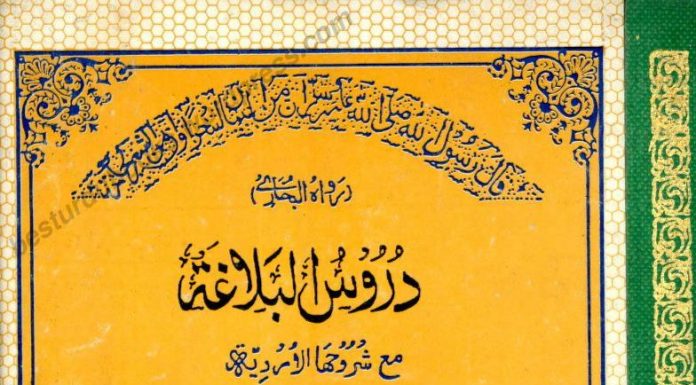 قال رسول الله صلى الله عليه وسلم إن من البيان لسحرا وإن من الشعر
(رواه البخاري)
دُرُوسُ البَلاغَةِ
مع شُرُوحِهَا الأُرْدِيَّةِ